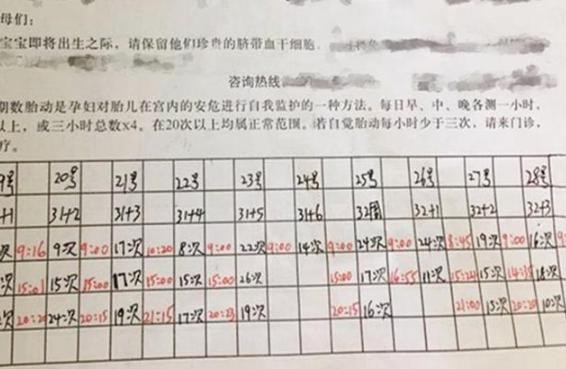 母们：
宝宝即将出生之际，请保留他们珍贵的脐带血干细胞
咨询热线
期数胎动是孕妇对胎儿在宫内的安危进行自我监护的一种方法。每日早、中、晚各测一小时，
以上，或三小时总数x4。在20次以上均属正常范围。若自觉胎动每小时少于三次，请来门诊，
疗。
9号 20号 21号 22号 23号 24号 25号 26号 27号 28号
+1 31+2 31+3 31+4 31+5 31+6 32周 32+1 32+2 32+3
次 9:16 9次 9:00 17次 10:20 8次 9:00 22次 9:00 14次 9:00 24次 9:00 24次 8:45 19次 9:00 16次
次 15:01 15次 15:00 17次 15:00 15次 15:00 26次 15:00 17次 16:55 11次 15:24 15次 18次
次 20:20 24次 20:15 19次 21:15 17次 20:23 19次 20:15 16次 21:00 15次 20:20 10次